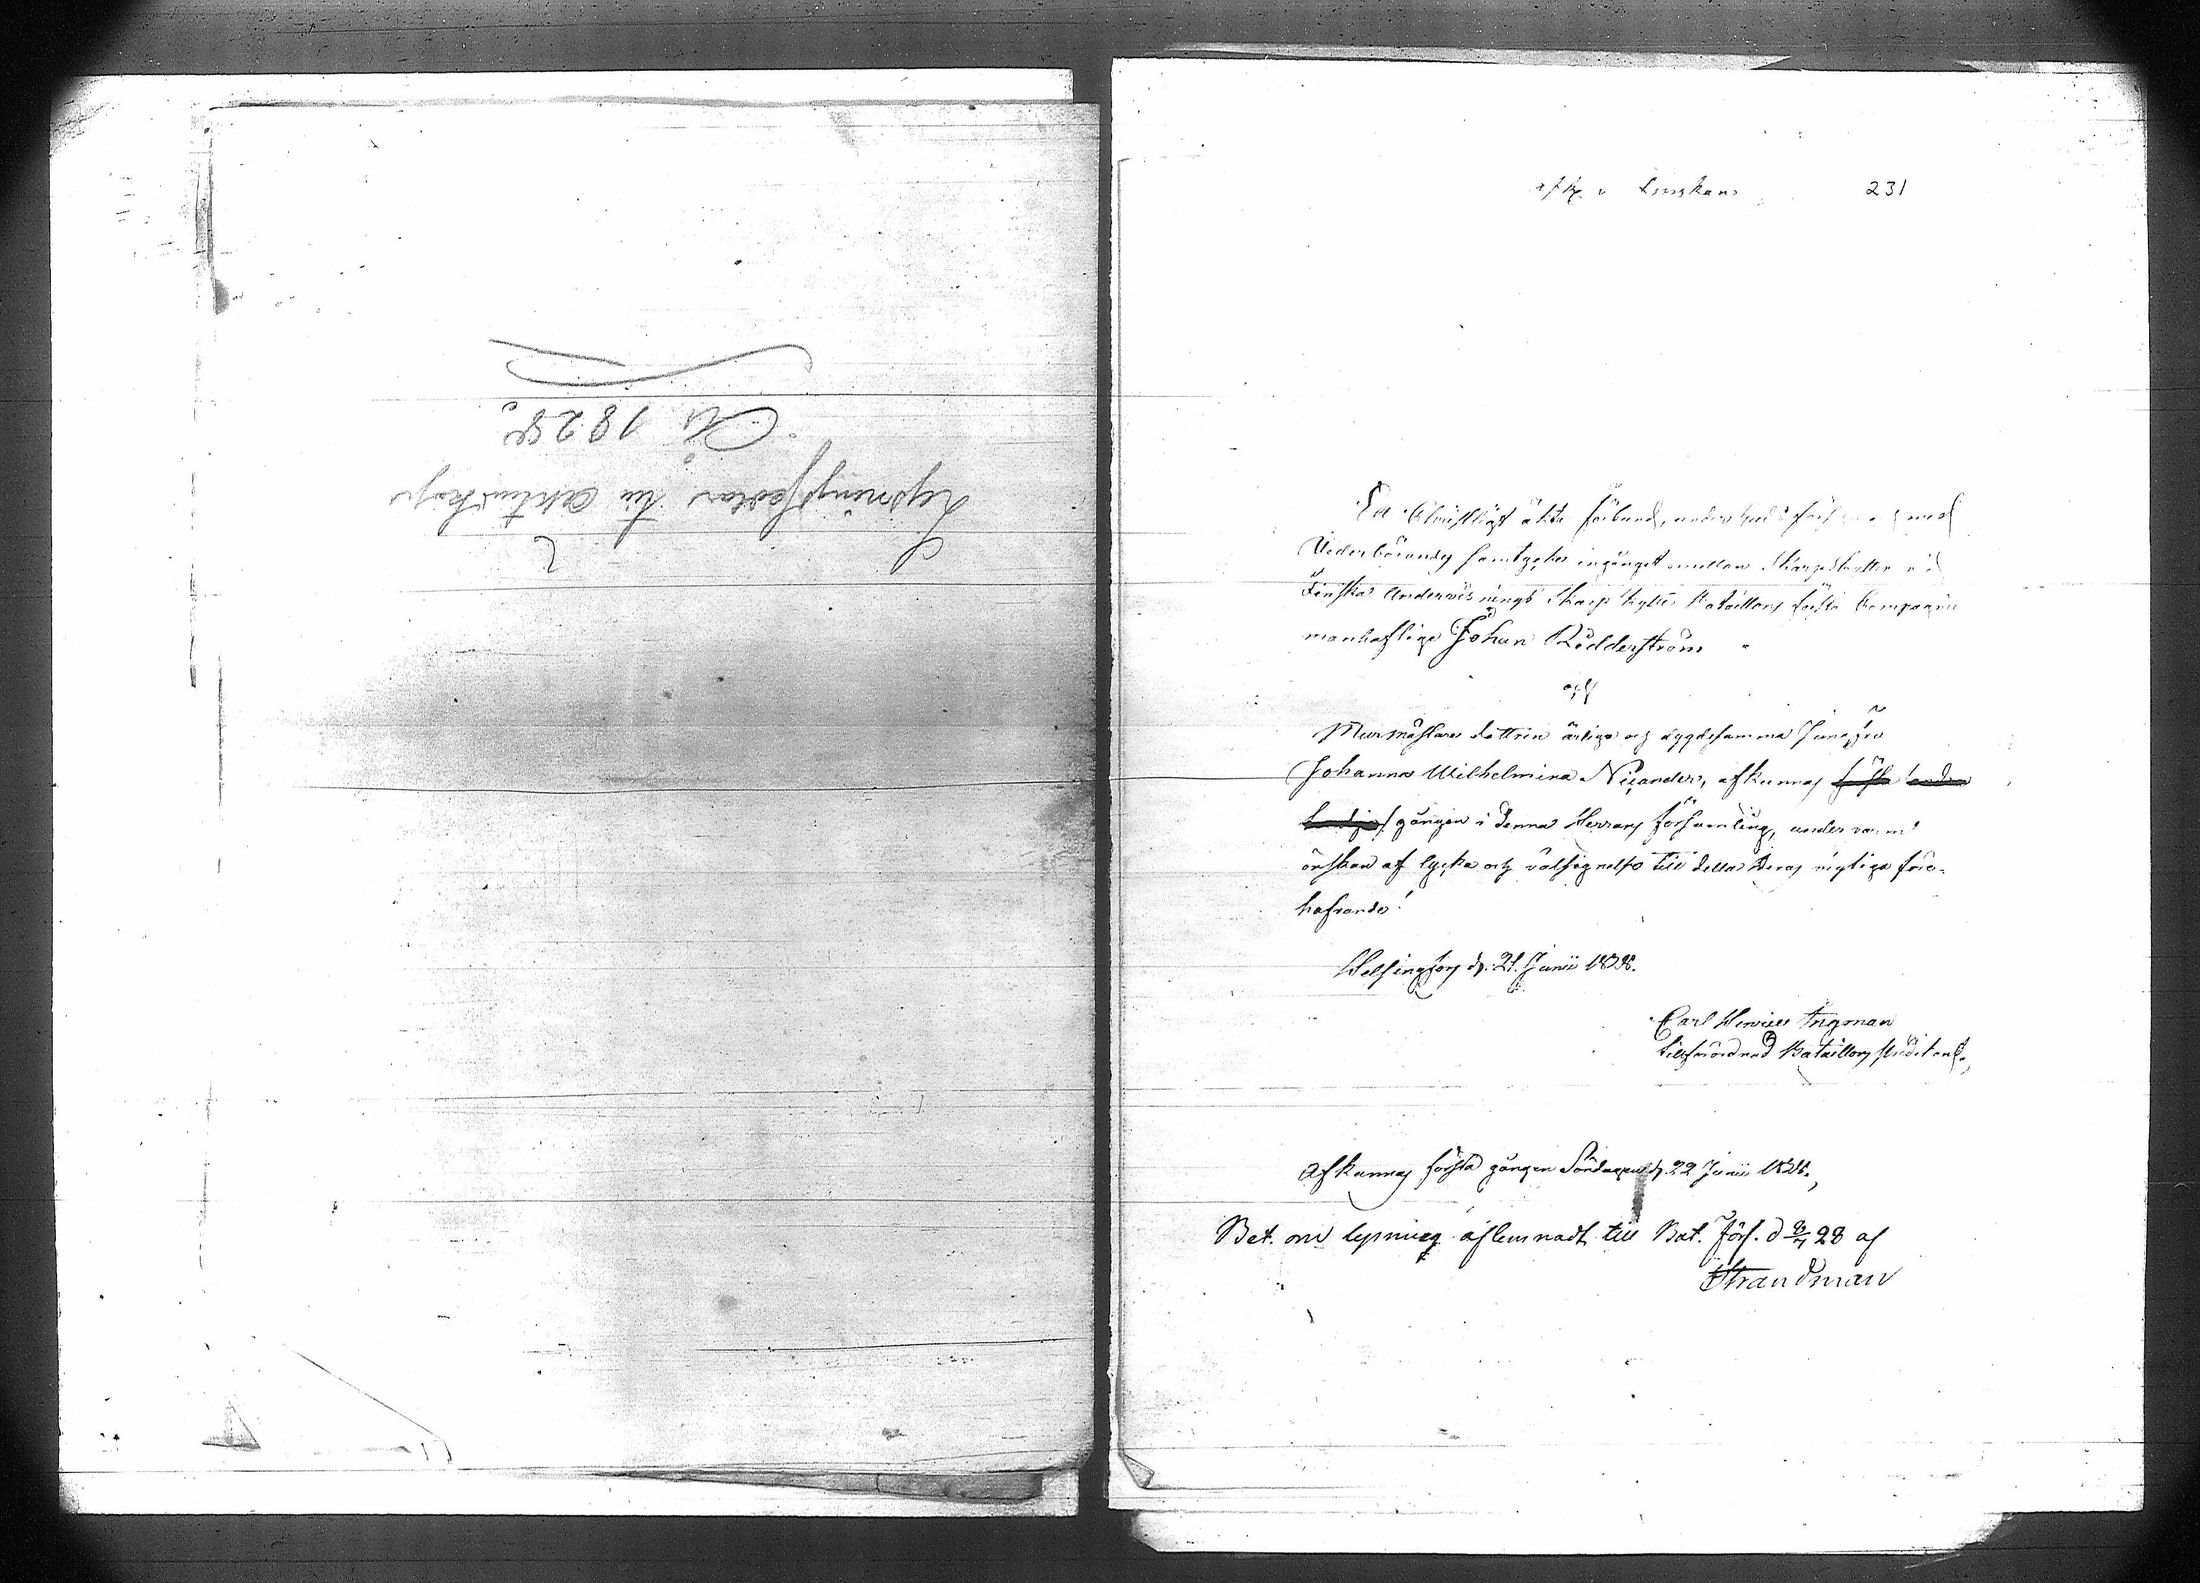 Lysningssedlar till Äktenskap
År 1828.
231
Ett Christligt äkta förbund, under Guds
Vederbörandes samtycke ingånget emellan Skarpskytten vid
Finska Undervisnings Skarpskytte Bataillons första Compagnie
manhaftige Johan Rödderström
och
Murmästare dottren ärliga och dygdesamma Jungfru
Johanna Wilhelmina Nicander, afkunnas första andra
tredje gången i denna Herrans församling, under varm
önskan af lycka och välsignelse till detta deras vigtiga före-
hafvande!
Helsingfors d. 21. Junii 1828.
Carl Henric Ingman
tillförordnad Bataillons Predikant.
Afkunnas första gången Söndagen d. 22 Junii 1828.
Bet. om lysning aflemnadt till Bat. Förs. d 28 af
Strandman